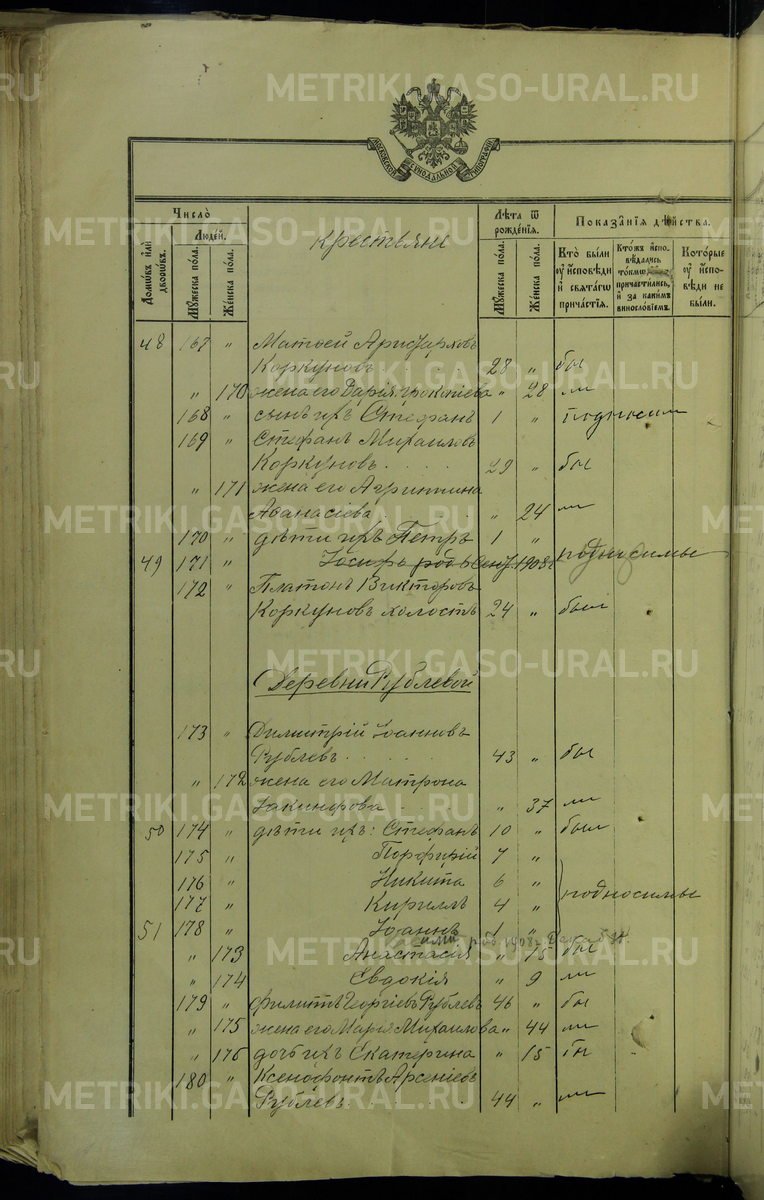 METRIKI.GASO-URAL.RU
МОСКОВСКОЙ СѴНОДАЛЬНОЙ ТИПОГРАФІИ
Число̀
Домѡ́въ и҆лѝ дворѡ́въ.
Люде́й.
Мꙋ́жеска по́ла.
Же́нска по́ла.
Крестьяне
Лѣ́та ѿ рожде́нїѧ.
Мꙋ́жеска по́ла.
Же́нска по́ла.
Показа̑нїѧ дѣ́йства.
Кто̀ бы́ли ᲂу҆ и҆сповѣди и҆ свѧта́гѡ прича́стїѧ.
Кто́жъ и҆спо-вѣ́дались то́кмѡ, причасти́лись, и҆ за каки́мъ винosло́вїемъ.
Кото́рые ᲂу҆ и҆спо-вѣди не бы́ли.
48 167 " Матѳей Аристарховъ
Коркуновъ . . . . 28 " бы
" 170 жена его Дарія Прокопіева " 28 ли
168 " сынъ ихъ Стефанъ 1 " подносим
169 " Стефанъ Михаиловъ
Коркуновъ . . . . 29 " бы
" 171 жена его Агриппина
Аѳанасіева . . . " 24 ли
170 " дѣти ихъ Петръ 1 "
49 171 " Іосифъ род. 6 Сент. 1908 г. подносимы
172 " Платонъ Викторовъ
Коркуновъ холостъ 24 " былъ
Деревни Рублевой
173 " Димитрій Іоанновъ
Рублевъ . . . . 43 " бы
" 172 жена его Матрона
Іакинфова . . . " 37 ли
50 174 " дѣти ихъ: Стефанъ 10 " былъ
175 " Порфирій 7 "
176 " Никита 6 " подносимы
177 " Кириллъ 4 "
51 178 " Іоаннъ 1 "
род. 1908 г. Декаб.
" 173 Анастасія " 15 бы
" 174 Евдокія " 9 ли
179 " Филиппъ Георгіевъ Рублевъ 46 " бы
" 175 жена его Марія Михаилова " 44 ли
" 176 дочь ихъ Екатерина " 15 бы
180 " Ксенофонтъ Арсеніевъ
Рублевъ . . . . 44 " ли